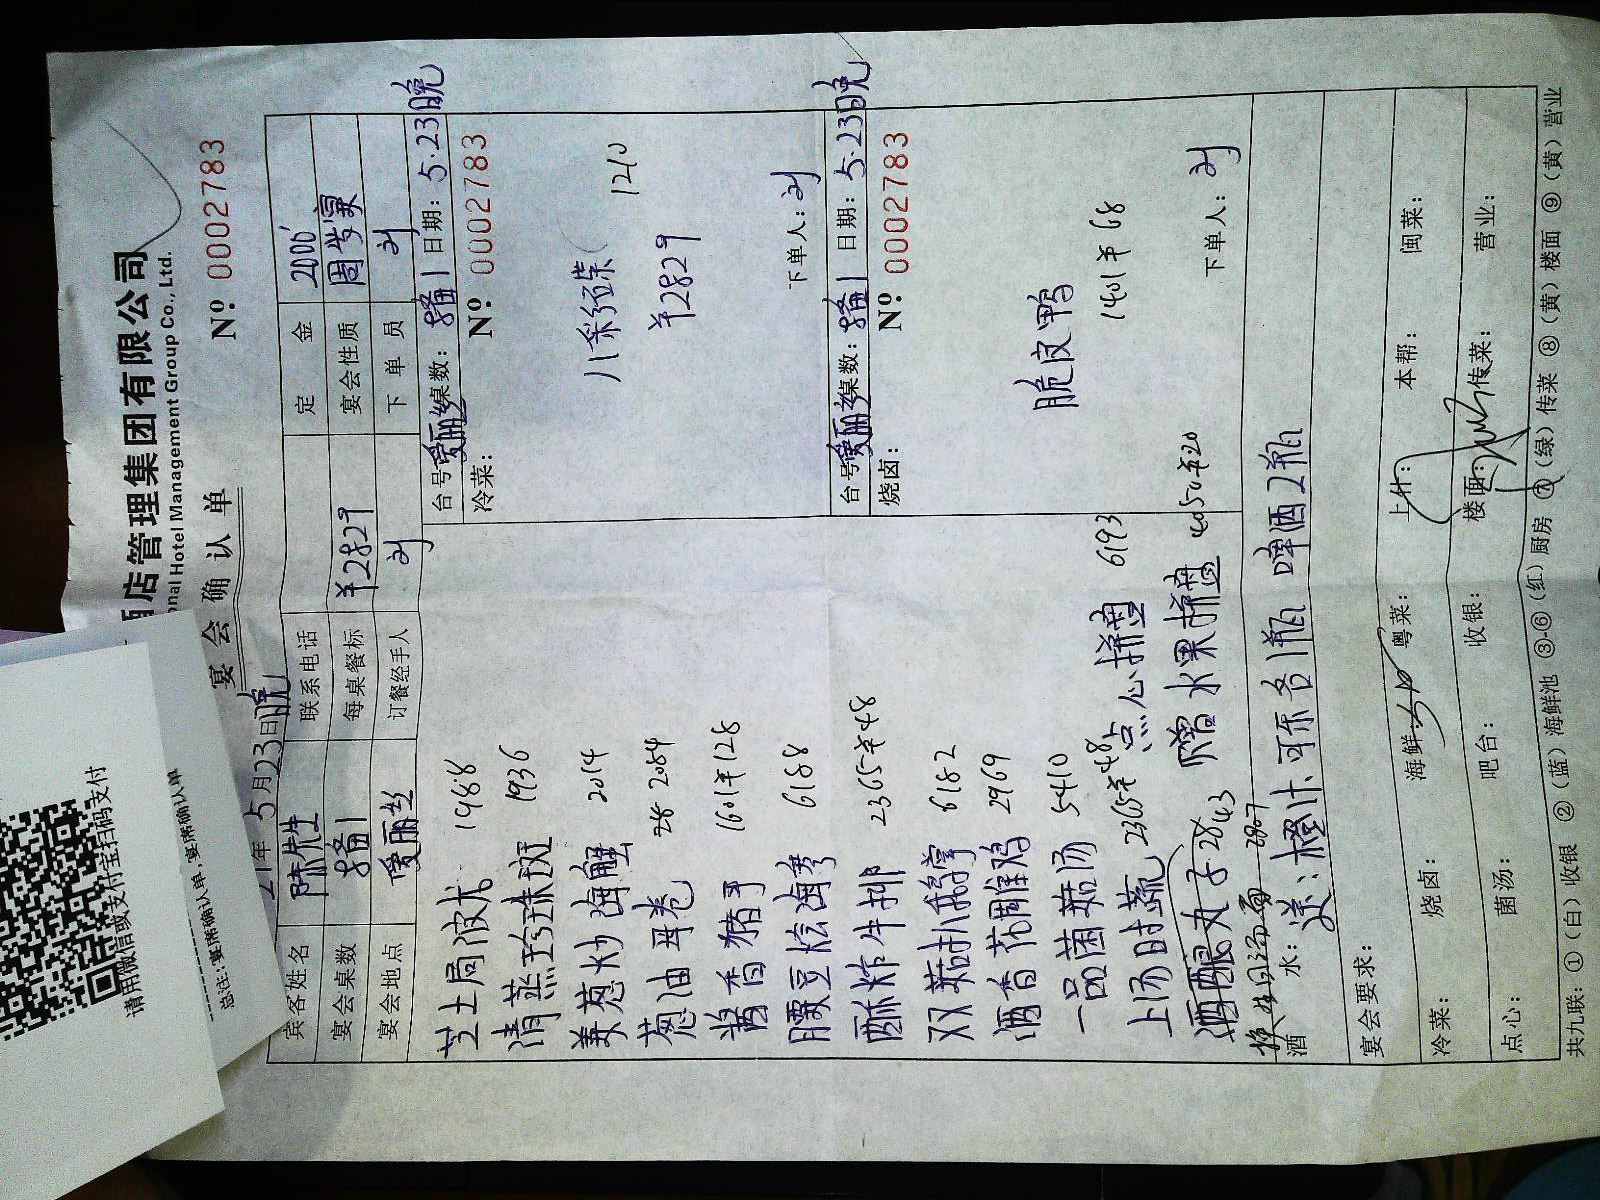 店管理集团有限公司
onal Hotel Management Group Co., Ltd.
宴会确认单
Nº 0002783
21年5月23日晚
宾客姓名 陈先生 联系电话 定金 2000
宴会桌数 1 每桌餐标 ¥2829 宴会性质 周岁宴
宴会地点 爱丽丝 订餐经手人 刘 下单员 刘
芝士局波龙 1988
清蒸珍珠斑 1936
姜葱炒海蟹 2014
葱油 28 2084
酱香猪手 1601 半128
腰豆烩海参 6188
酥炸牛排 2365 半48
双菇扒鹅掌 6182
酒香花雕鸡 2969
一品菌菇汤 5410
上汤时蔬 2365半48
酒酿丸子 28 43
点心拼盘 6193
赠水果拼盘 4050半20
台号 爱丽丝 桌数: 1 日期: 5.23晚
冷菜: Nº 0002783
八彩碟 1210
¥2829
下单人: 刘
台号 爱丽丝 桌数: 1 日期: 5.23晚
烧卤: Nº 0002783
脆皮鸭
1401半68
下单人: 刘
酒水: 送: 橙汁、可乐各1瓶 啤酒2瓶
2807
宴会要求:
冷菜: 烧卤: 海鲜 粤菜: 上什: 本帮: 闽菜:
点心: 菌汤: 吧台: 收银: 楼面: 传菜: 营业:
共九联: ①(白)收银 ②(蓝)海鲜池 ③-⑥(红)厨房 ⑦(绿)传菜 ⑧(黄)楼面 ⑨(黄)营业
请用微信或支付宝扫码支付
总注: 宴席确认单, 宴席确认单